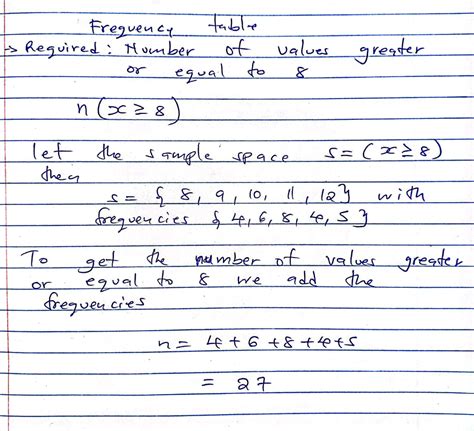 Frequency table
→ Required: Number of values greater
or equal to 8
n(x ≥ 8)
let the sample space s = (x ≥ 8)
then
s = { 8, 9, 10, 11, 12} with
frequencies { 4, 6, 8, 4, 5 }
To get the number of values greater
or equal to 8 we add the
frequencies
n = 4 + 6 + 8 + 4 + 5
= 27